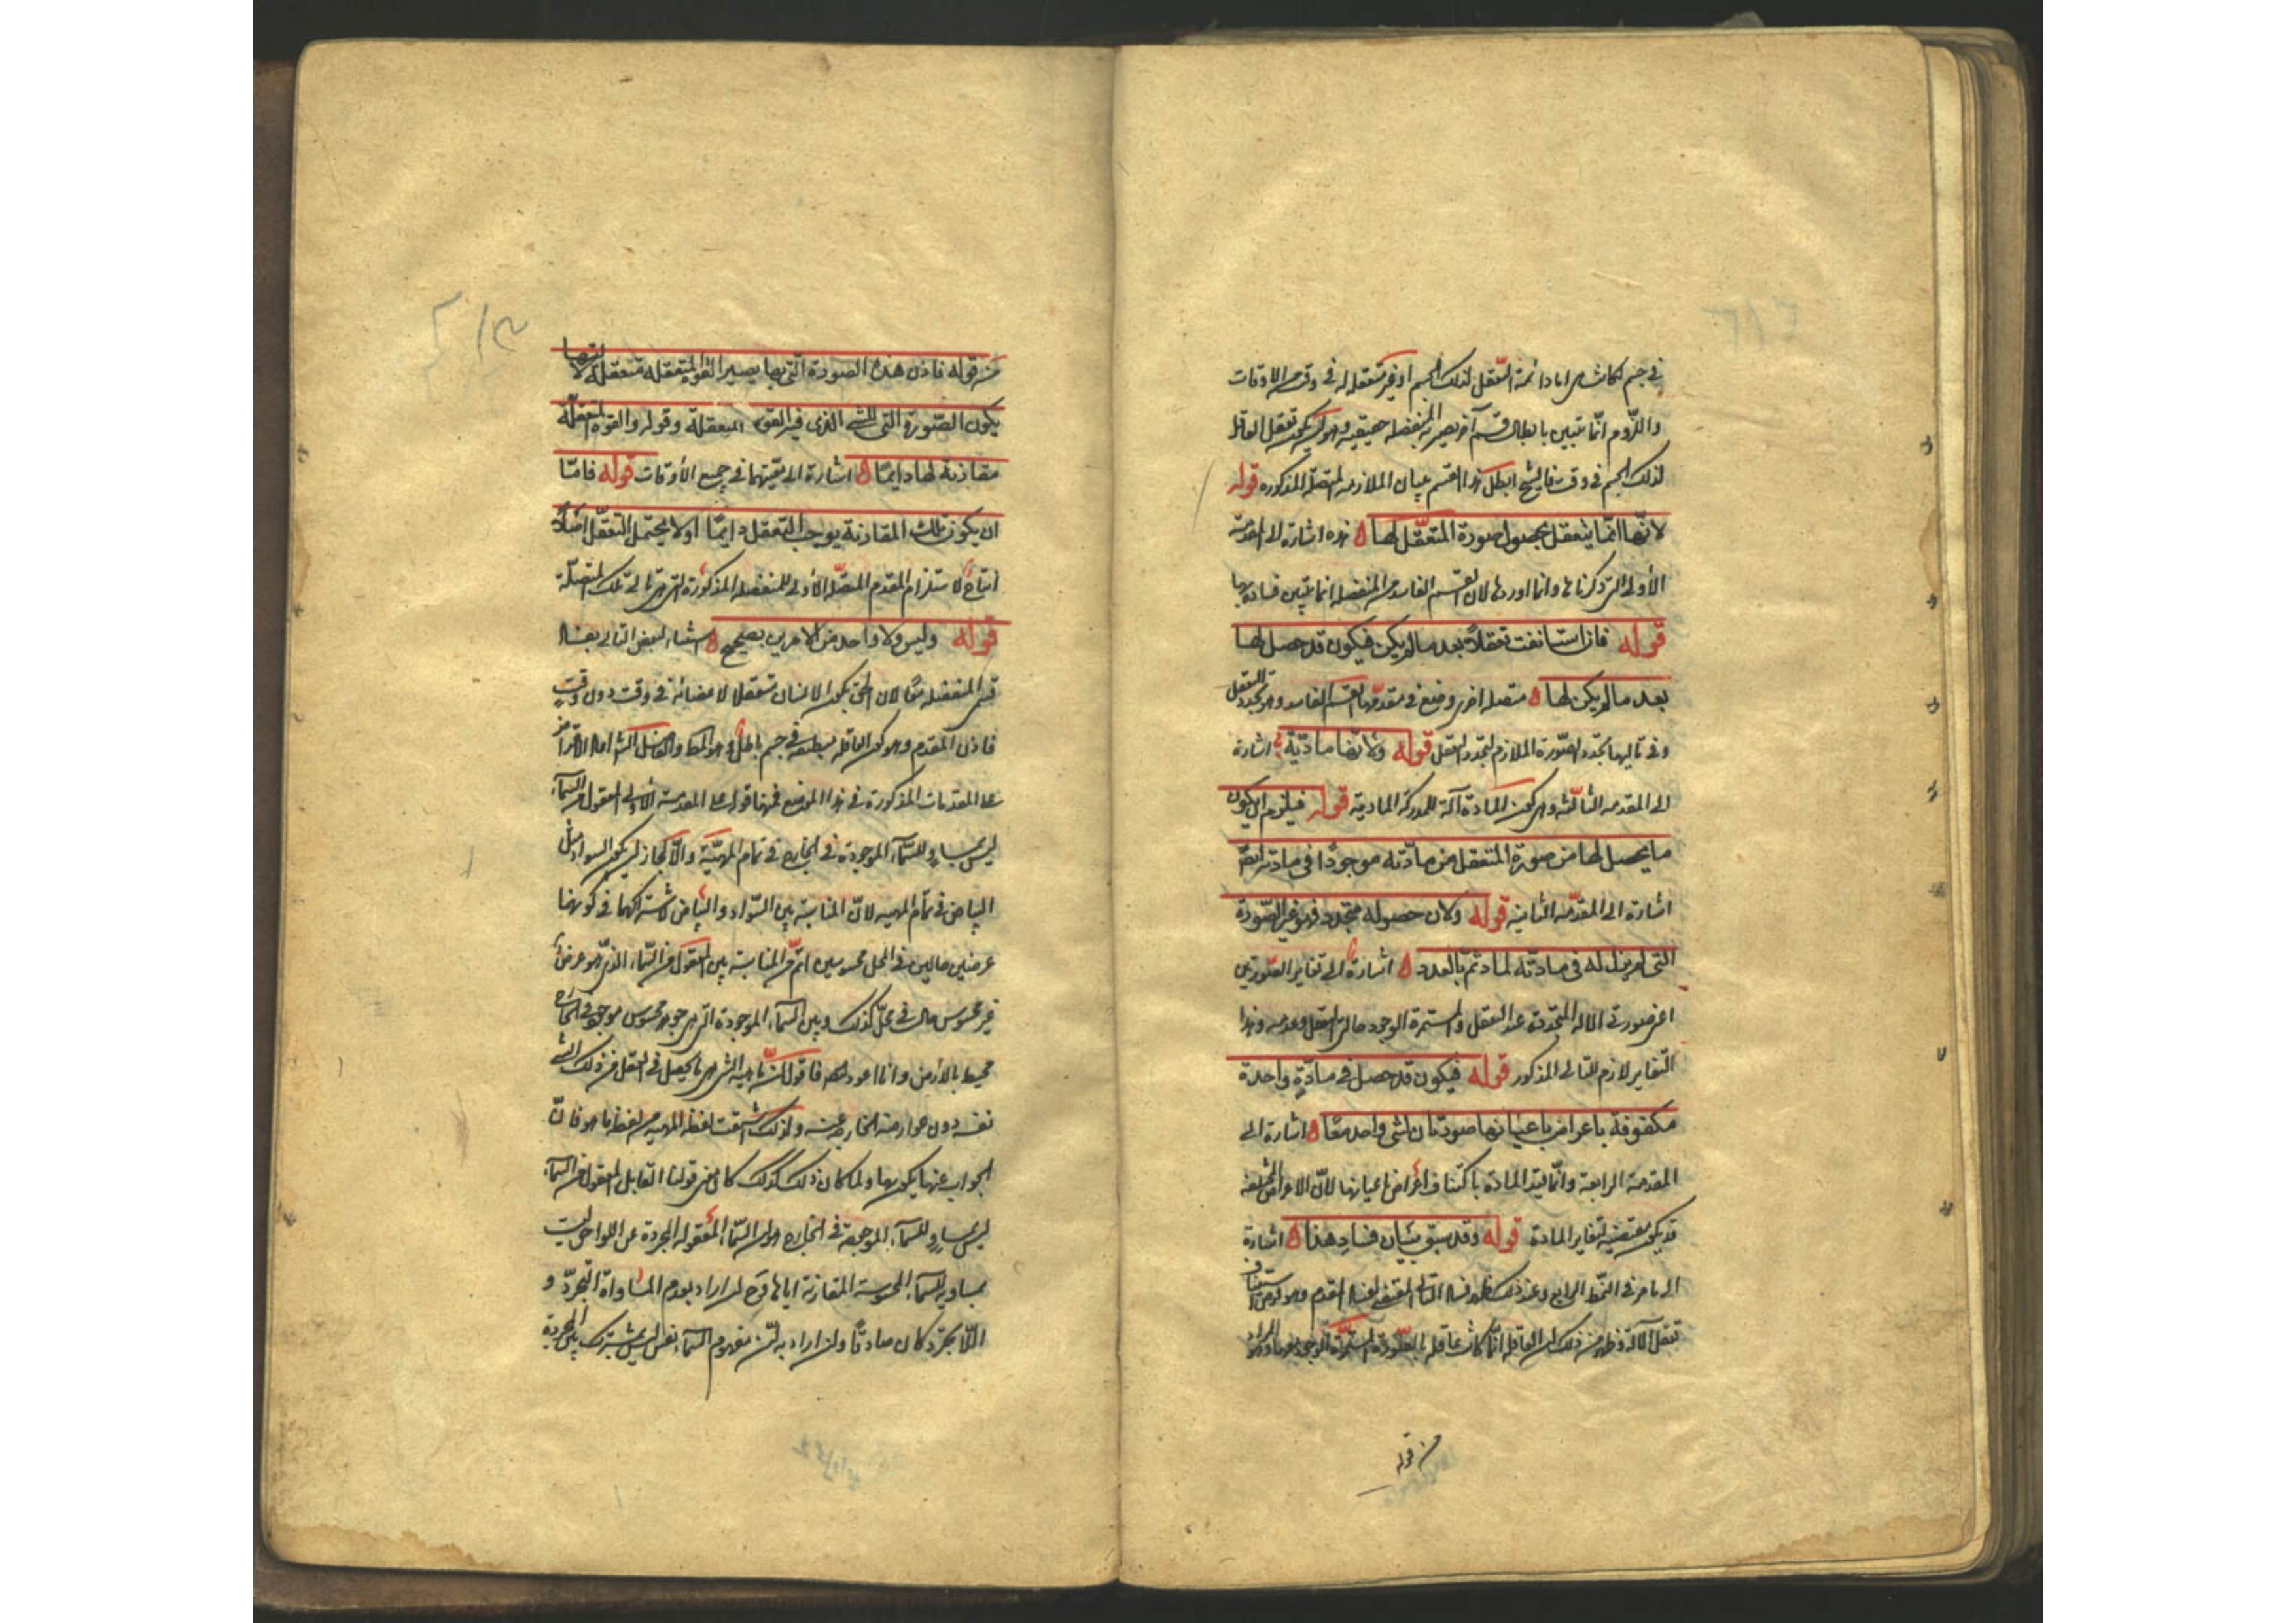 في جسم لكانت هي اما دائمة التعقل لذلك الجسم او غير متعقلة له في وقت من الاوقات
واللزوم انما يتبين بابطال قسم آخر يصير المنفصلة حقيقية وهو ان يكون تعقل العاقلة
لذلك الجسم في وقت فالشيخ ابطل هذا القسم ببيان الملازمة المتصلة المذكورة قوله
لانها انما يتعقل بحصول صورة المتعقل لها ه هذه اشارة الى المقدمة
الأولى التي ذكرناها وانما اوردها لان القسم الفاسد من المنفصلة انما يتبين فساده بها
قوله فان استانفت تعقلاً بعد مالم يكن فيكون قد حصل لها
بعد مالم يكن لها ه متصلة اخرى وضع في مقدمها القسم الفاسد وهو تجدد التعقل
وفي تاليها تجدد الصورة الملازم لتجدد التعقل قوله ولانها مادية ه اشارة
الى المقدمة الثالثة وهي كون المادة آلة للمدركة المادية قوله فيلزم ان يكون
ما يحصل لها من صورة المتعقل من مادته موجودًا في مادته ايضًا
اشارة الى المقدمة الثانية قوله ولان حصوله متجدد فهو غير الصورة
التى لم يزل له فى مادته لمادته بالعدد ه اشارة الى تغاير الصورتين
اعني صورتي الآلة المتجددة عند التعقل والمستمرة الوجود حالتي التعقل وعدمه وهذا
التغاير لازم للتالي المذكور قوله فيكون قد حصل في مادةٍ واحدة
مكفوفة باعراض باعيانها صورتان لشي واحد معًا ه اشارة الى
المقدمة الرابعة وانما قيد المادة باكتناف اعراض باعيانها لانّ الاعراض المختلفة
قد يكون مقتضية لتغاير المادة قوله وقد سبق بيان فساد هذا ه اشارة
الى ما مر في النمط الرابع وعند ذلك ظهر فساد التالى المقتضي لفساد المقدم وهو كون استيناف
تعقل الآلة فظهر من ذلك ان العاقلة انما كانت عاقلة بالصورة المستمرة الوجود
من قوله
من قوله فاذن هذه الصورة التي بها يصير القوة المتعقلة متعقلة لآلتها
يكون الصورة التى للشي الذى فيه القوة المتعقلة وقوله والقوة المتعقلة
مقارنة لها دايمًا ه اشارة الى معيتهما في جميع الأوقات قوله فامّا
ان يكون تلك المقارنة يوجب التعقل دايمًا او لا يحتمل التعقل اصلاً
انتاج لاستلزام المقدم المتصلة الأولى للمنفصلة المذكورة التي هي تالي تلك المتصلة
قوله وليس ولا واحد من الامرين بصحيح ه استثناء لنقيض التالي بفساد
قسمي المنفصلة معًا لان الحق كون الانسان متعقلا لاعضائه في وقت دون وقت
فاذن المقدم وهو كون العاقلة منطبعة في جسم باطل وهو المط والفاضل الشارح اما الاعتراض
على المقدمات المذكورة في هذا الموضع فمنها قوله على المقدمة الأولى المعقول من السماء
ليس بمساوٍ للسماء الموجودة في الخارج في تمام المهية والا لجاز ان يكون السواد مثل
البياض في تمام المهية لانّ المناسبة بين السواد والبياض لاشتراكهما في كونهما
عرضين حالين في المحل محسوسين اتم من المناسبة بين المعقول من السماء الذي هو عرض
غير محسوس حال في محل كذلك وبين السماء الموجودة التي هي جوهر محسوس موجود في الخارج
محيط بالأرض وانا اعود فاقول ان ماهية الشي هي ما يحصل في العقل من ذلك الشي
نفسه دون عوارضه الخارجة عنه ولذلك اشتقت لفظة المهية من لفظة ما هو فانّ
الجواب عنها يكون بها ولما كان ذلك كذلك كان معنى قولنا القائل المعقول من السماء
ليس بمساوٍ للسماء الموجودة في الخارج هو ان السماء المعقولة المجردة عن اللواحق ليست
بمساوية للسماء المحسوسة المقارنة اياها فح ان اراد بعدم المساواة التجرد و
اللاتجرد كان صادقًا وان اراد به ان مفهوم السماء نفس ليس بمشترك بين المجردة